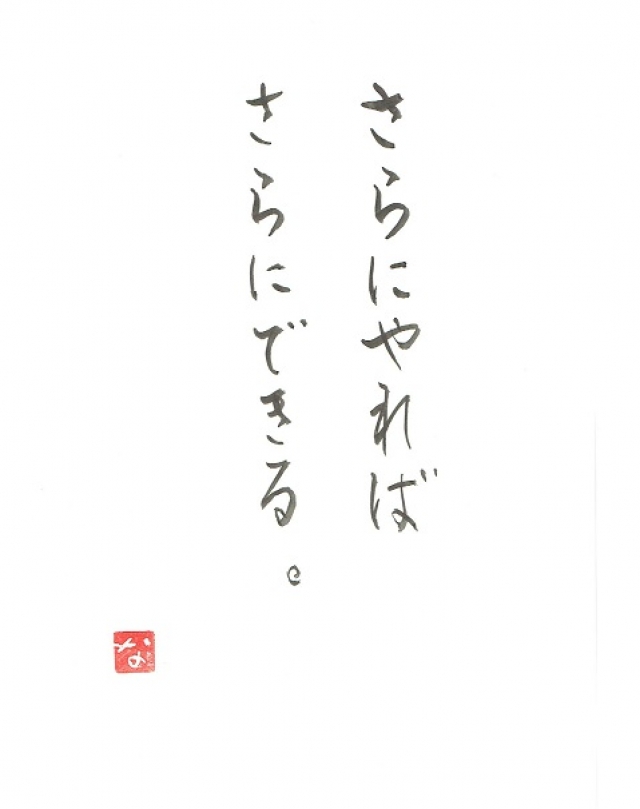 さらにやれば
さらにできる。
な